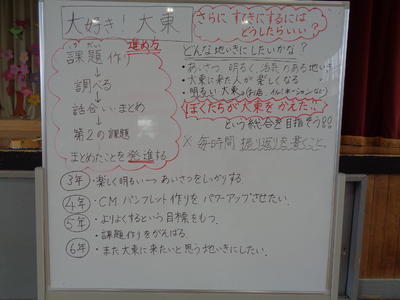 大好き！大東
進め方
かだい
課題作り
↓
調べる
↓
話合い・まとめ
↓
第2の課題
まとめたことを発進する
さらに すてきにするには
どうしたらいい？
どんな地いきにしたいかな？
・あいさつ、明るく、活気がある地いき
・大東に来た人が楽しくなる
・明るい大東（お店、イルミネーションなど）
ぼくたちが大東をかえた!!
という総合を目指そう!!
※毎時間 振り返りを書くこと。
3年・楽しく明るい→あいさつをしっかりする
4年・CM パンフレット作りを パワーアップさせたい。
5年・よりよくするという目標をもつ。
・課題作りをがんばる
6年・また大東に来たいと思う地いきにしたい。